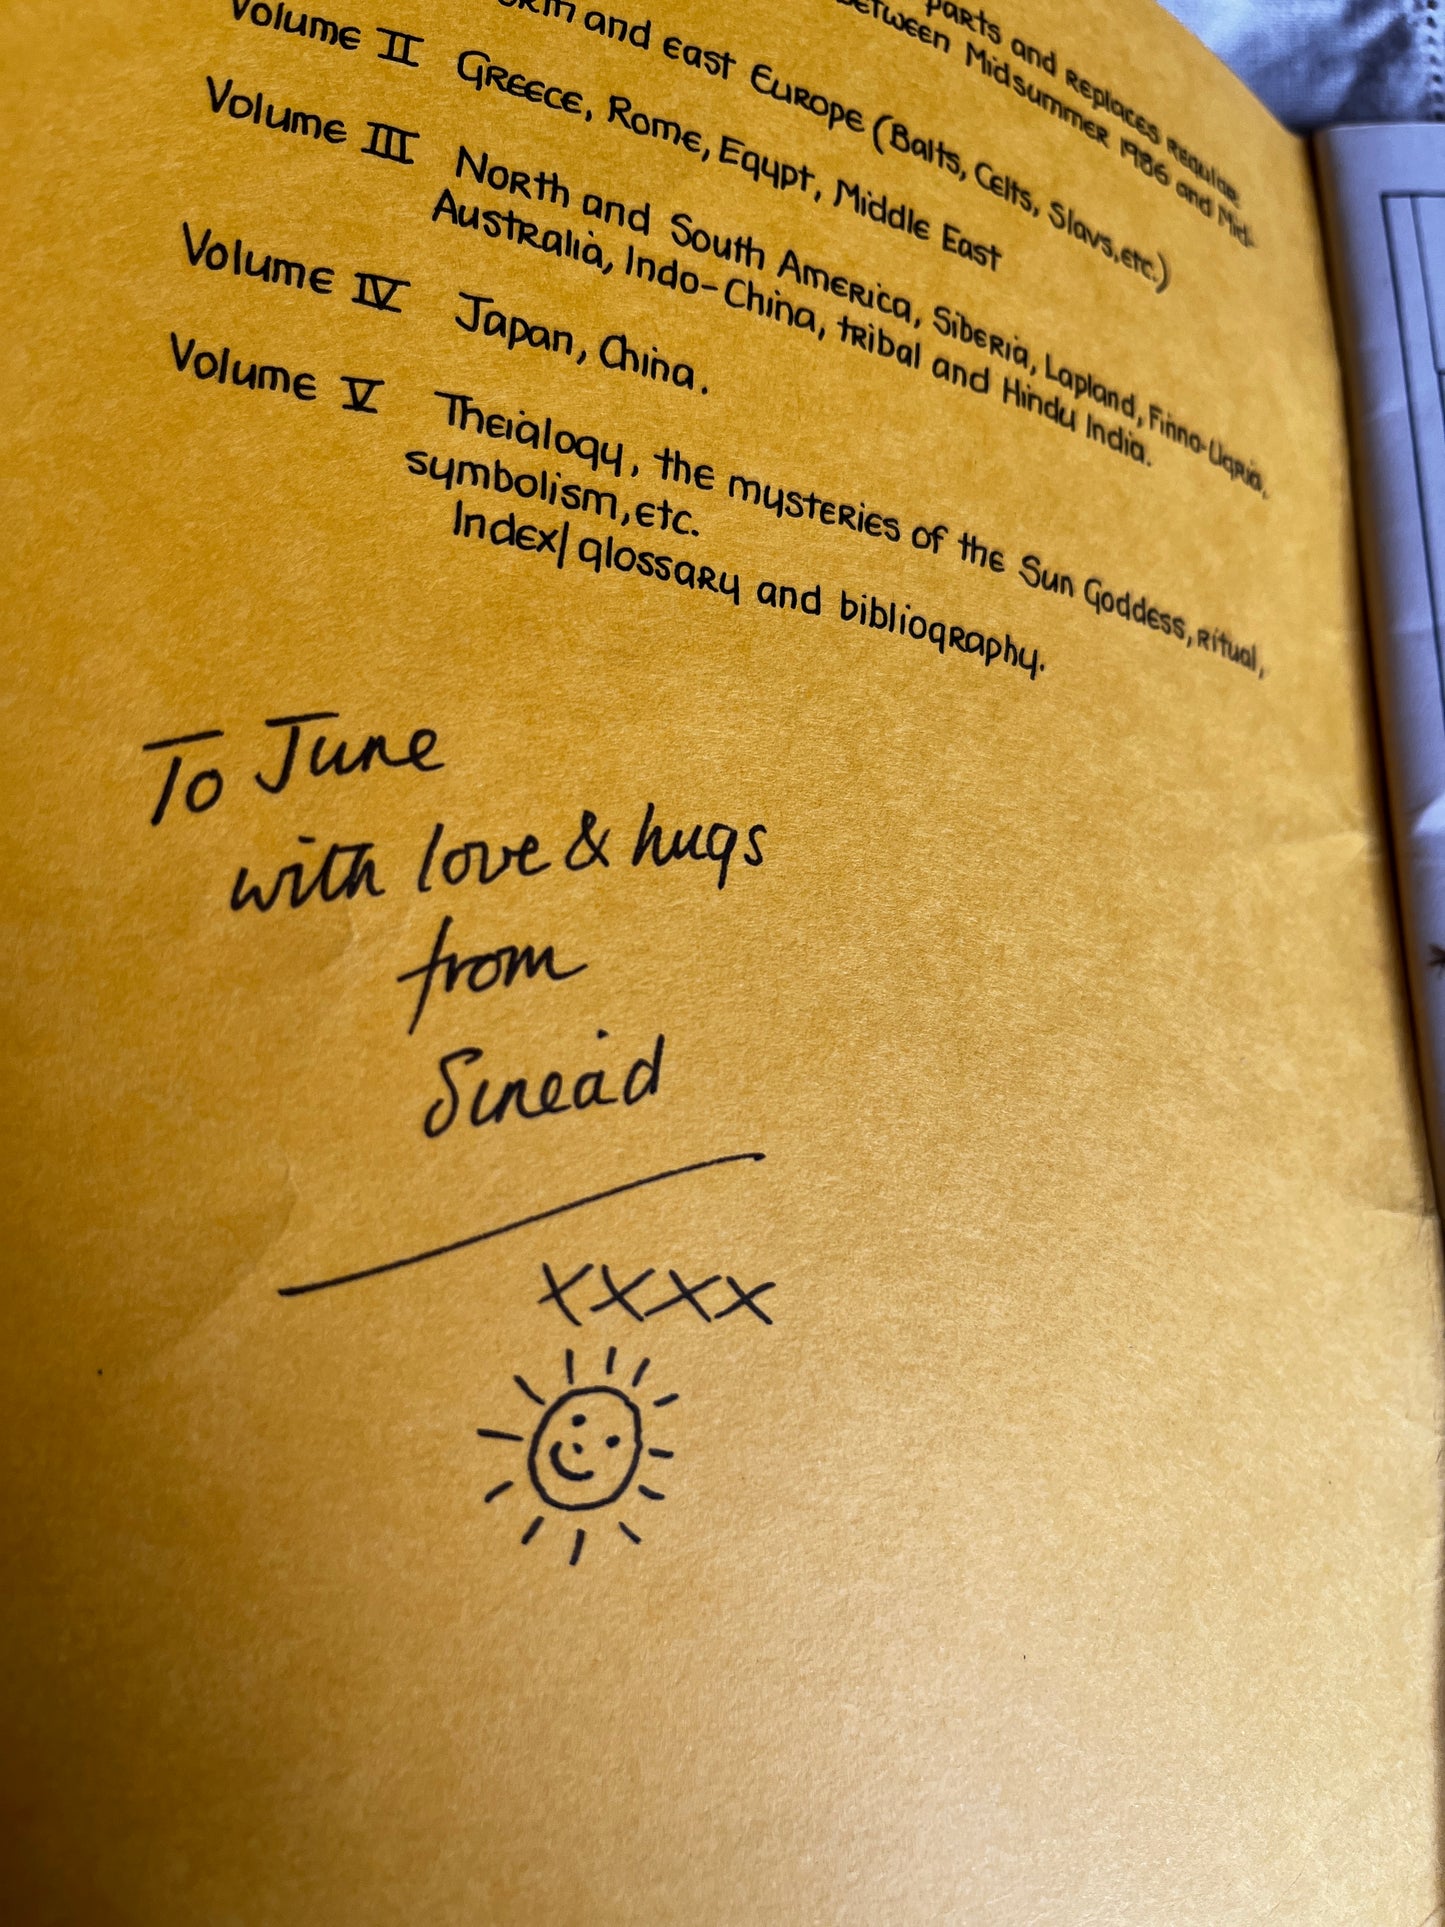 parts and replaces regular
between Midsummer 1986 and Mid-
and east Europe (Balts, Celts, Slavs, etc.)
Volume II Greece, Rome, Egypt, Middle East
Volume III North and South America, Siberia, Lapland, Finno-Ugria,
Australia, Indo-China, tribal and Hindu India.
Volume IV Japan, China.
Volume V Theialogy, the mysteries of the Sun Goddess, ritual,
symbolism, etc.
Index/glossary and bibliography.
To June
with love & hugs
from
Sinéad
xxxx